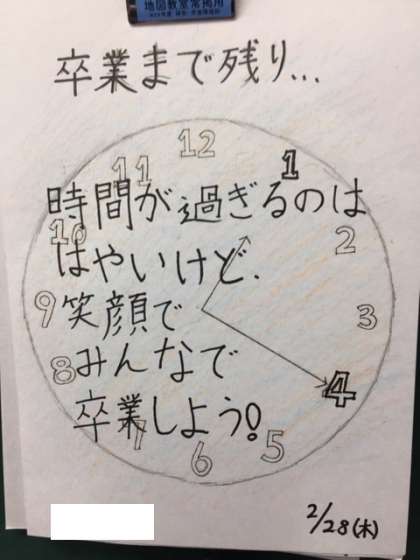 地図教室常掲用
卒業まで残り...
12
11
1
時間が過ぎるのは
10
2
はやいけど、
9
笑顔で
3
8
みんなで
4
卒業しよう!
7
6
5
2/28(木)